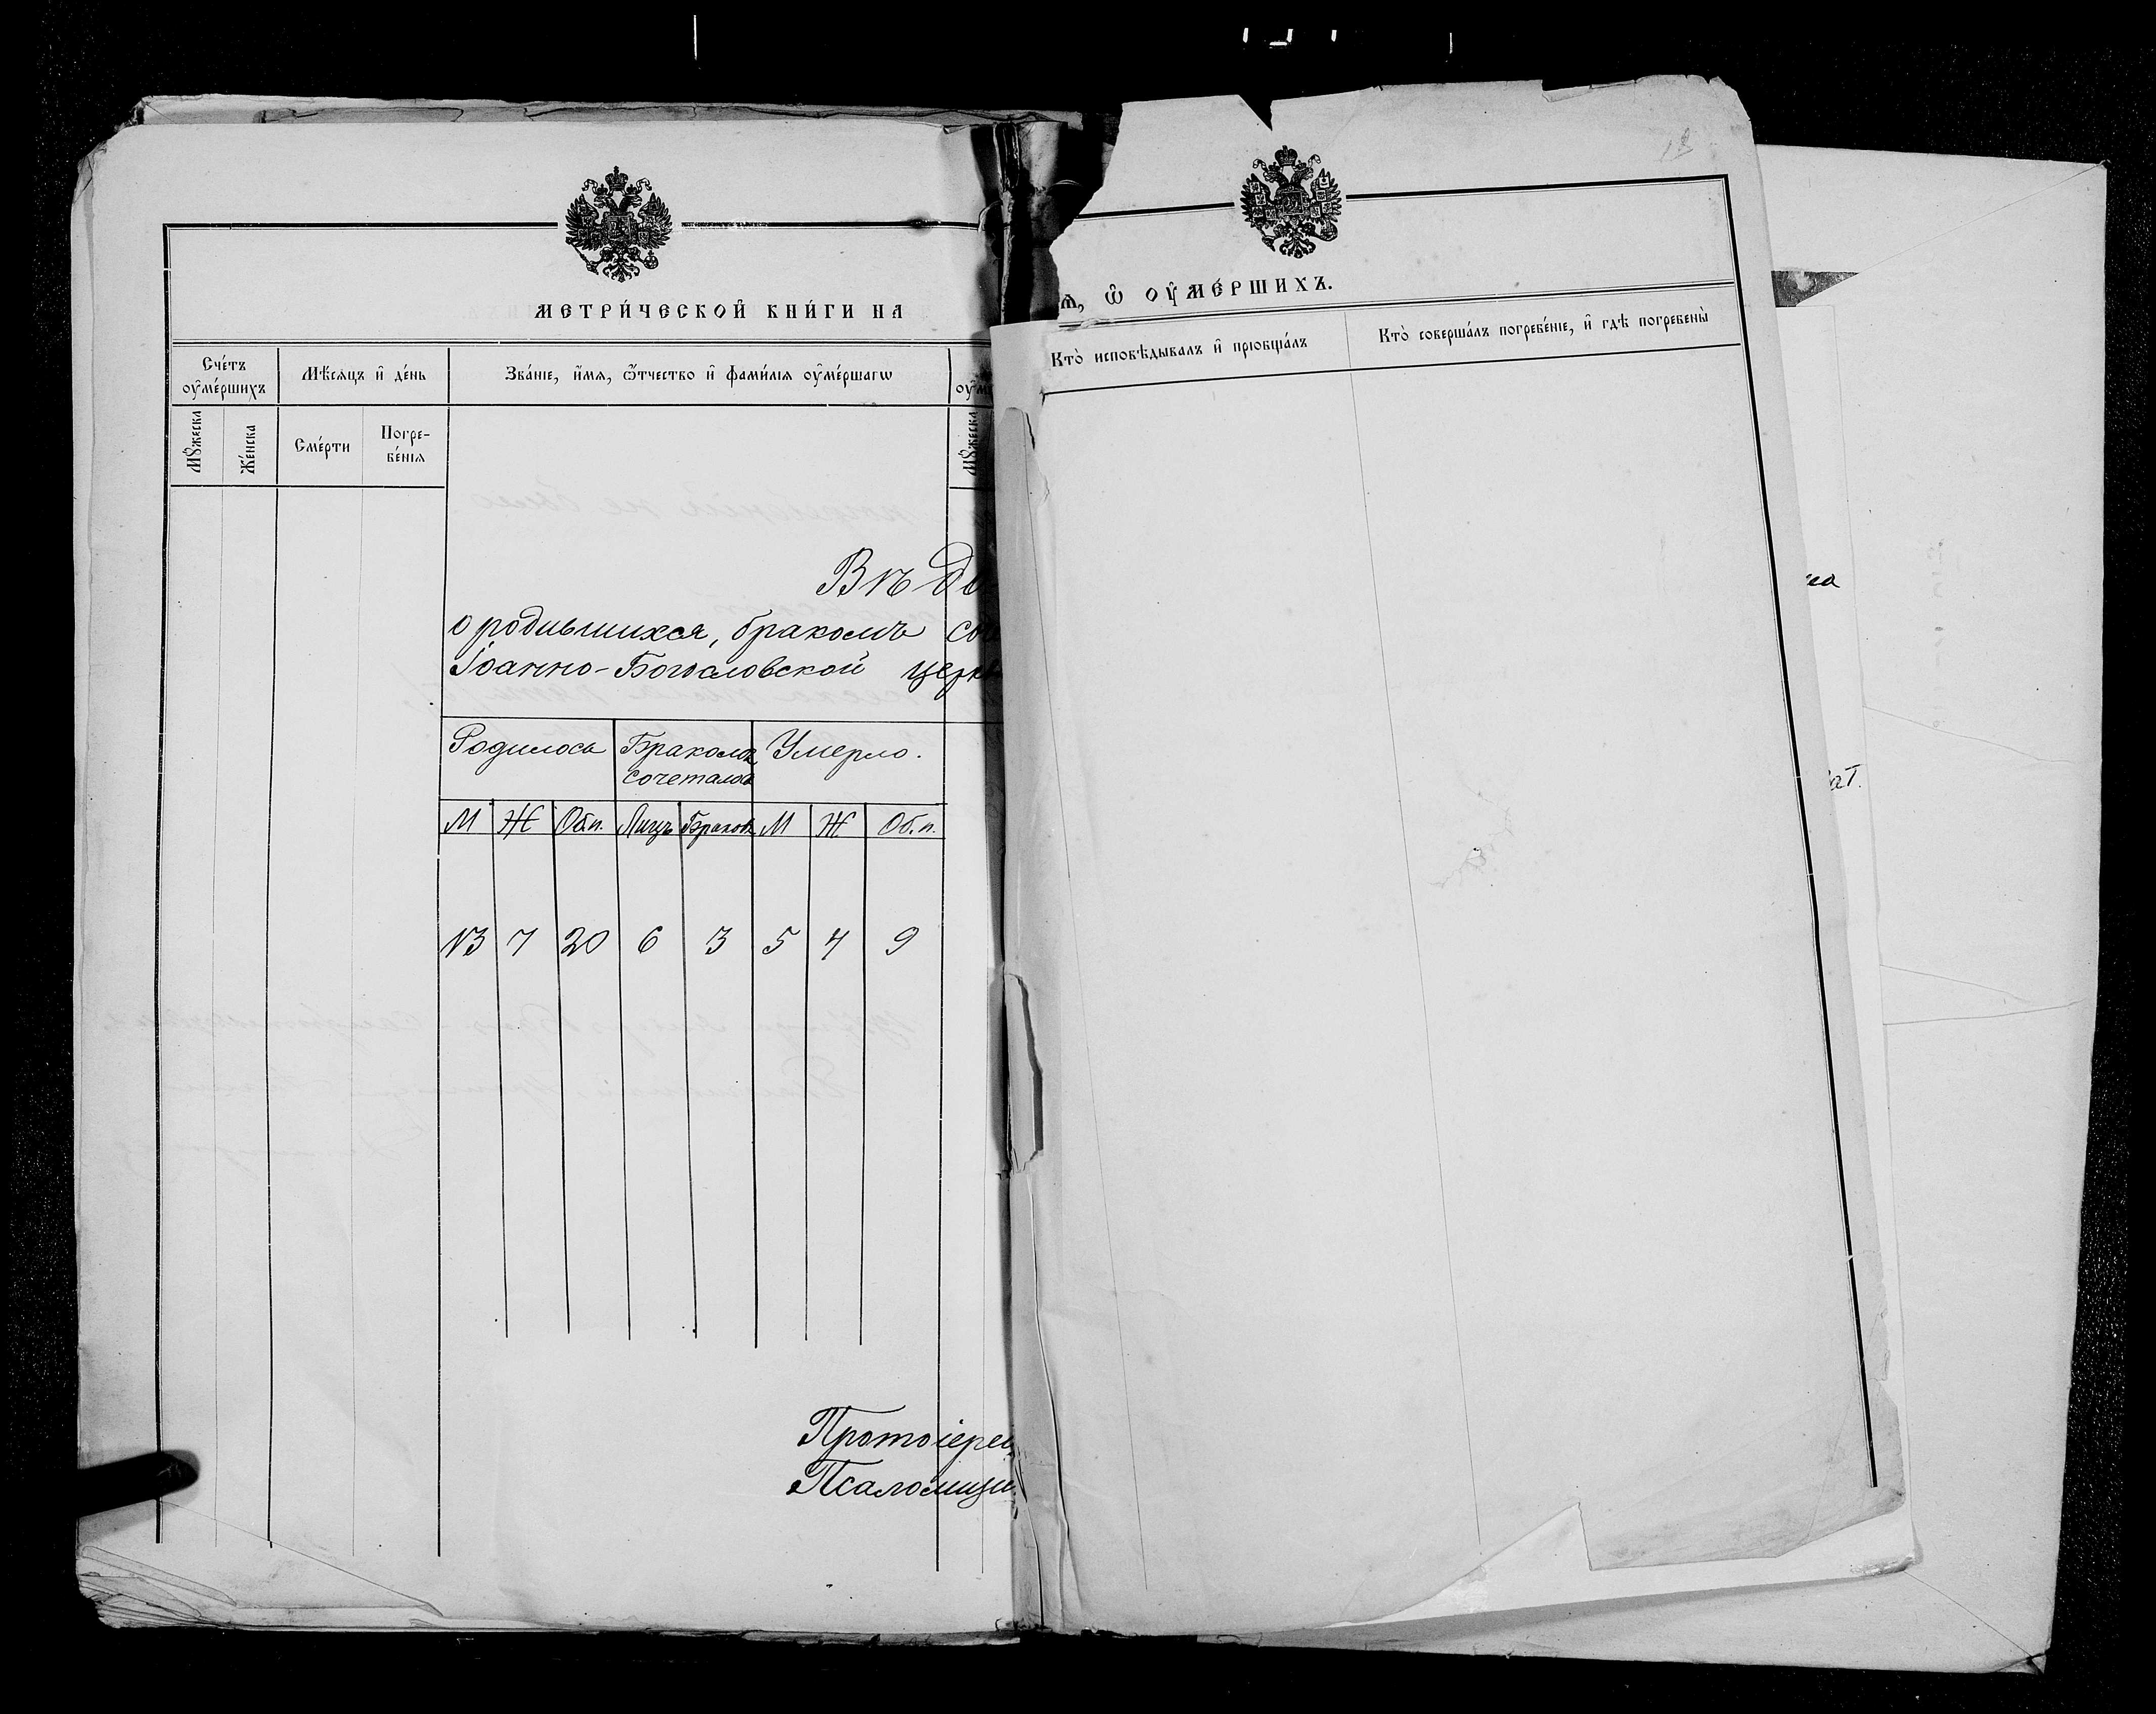 МЕТРИ́ЧЕСКОЙ КНИ́ГИ НА
Сче́тъ ᲂу҆ме́ршихъ
Мѣ́сѧцъ и҆ де́нь
Зва́нїе, и҆́мѧ, ѻ҆́тчество и҆ фами́лїѧ ᲂу҆ме́ршагѡ
Мꙋ́жеска
Же́нска
Сме́рти
Погребе́нїѧ
Мꙋ́жеска
о родившихся, бракомъ
Іоанно-Богословской
Родилось
Бракомъ сочеталось
Умерло.
М Ж Об.п. Лицъ Браковъ М Ж Об. п.
13 7 20 6 3 5 4 9
Протоіерей
Псаломщи
ѧ, ѡ҆ ᲂу҆ме́ршихъ.
Кто̀ исповѣ́дывалъ и҆ прїобща́лъ
Кто̀ соверша́лъ погребе́нїе, и҆ гдѣ̀ погребены̀